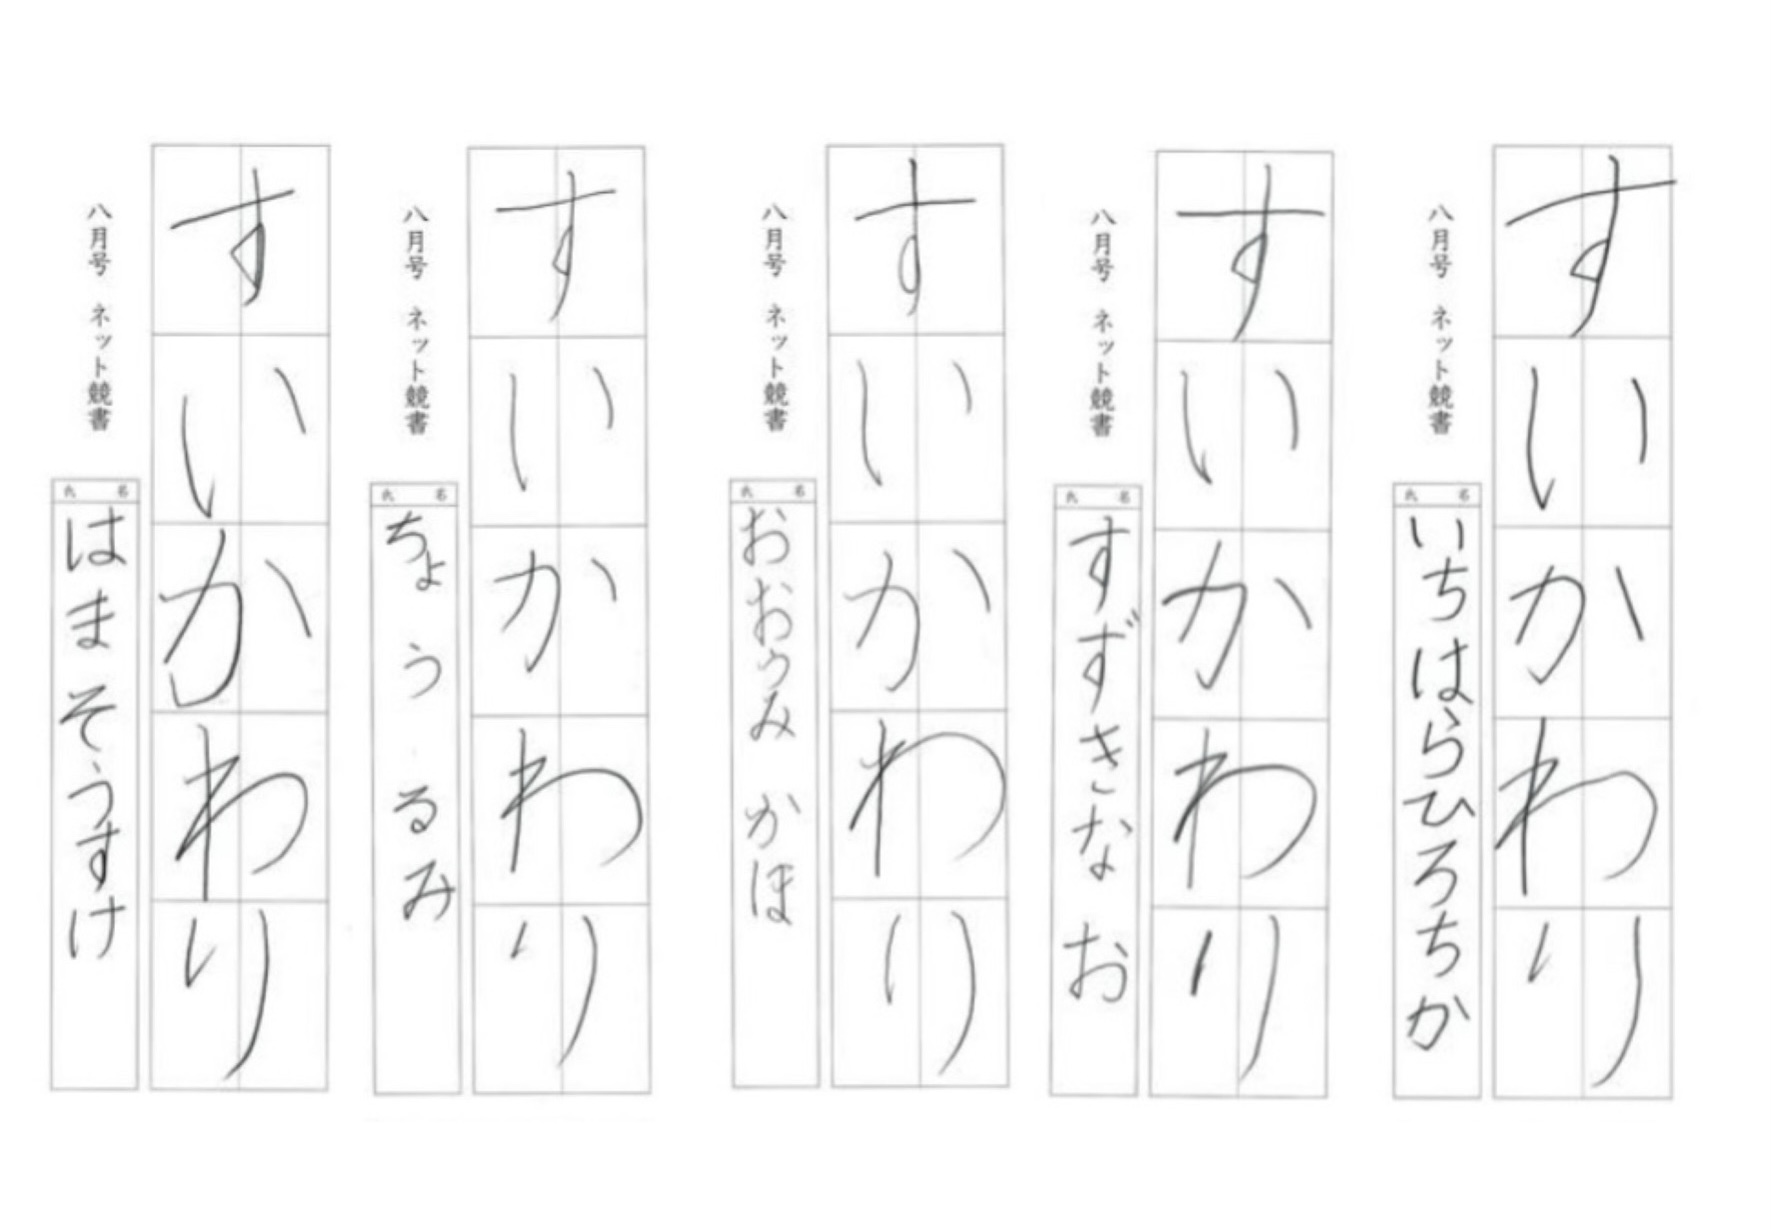 すいかわり
八月号 ネット競書
氏名
いちはらひろちか
すいかわり
八月号 ネット競書
氏名
すずきなお
すいかわり
八月号 ネット競書
氏名
おおうみ かほ
すいかわり
八月号 ネット競書
氏名
ちょう るみ
すいかわり
八月号 ネット競書
氏名
はまそうすけ